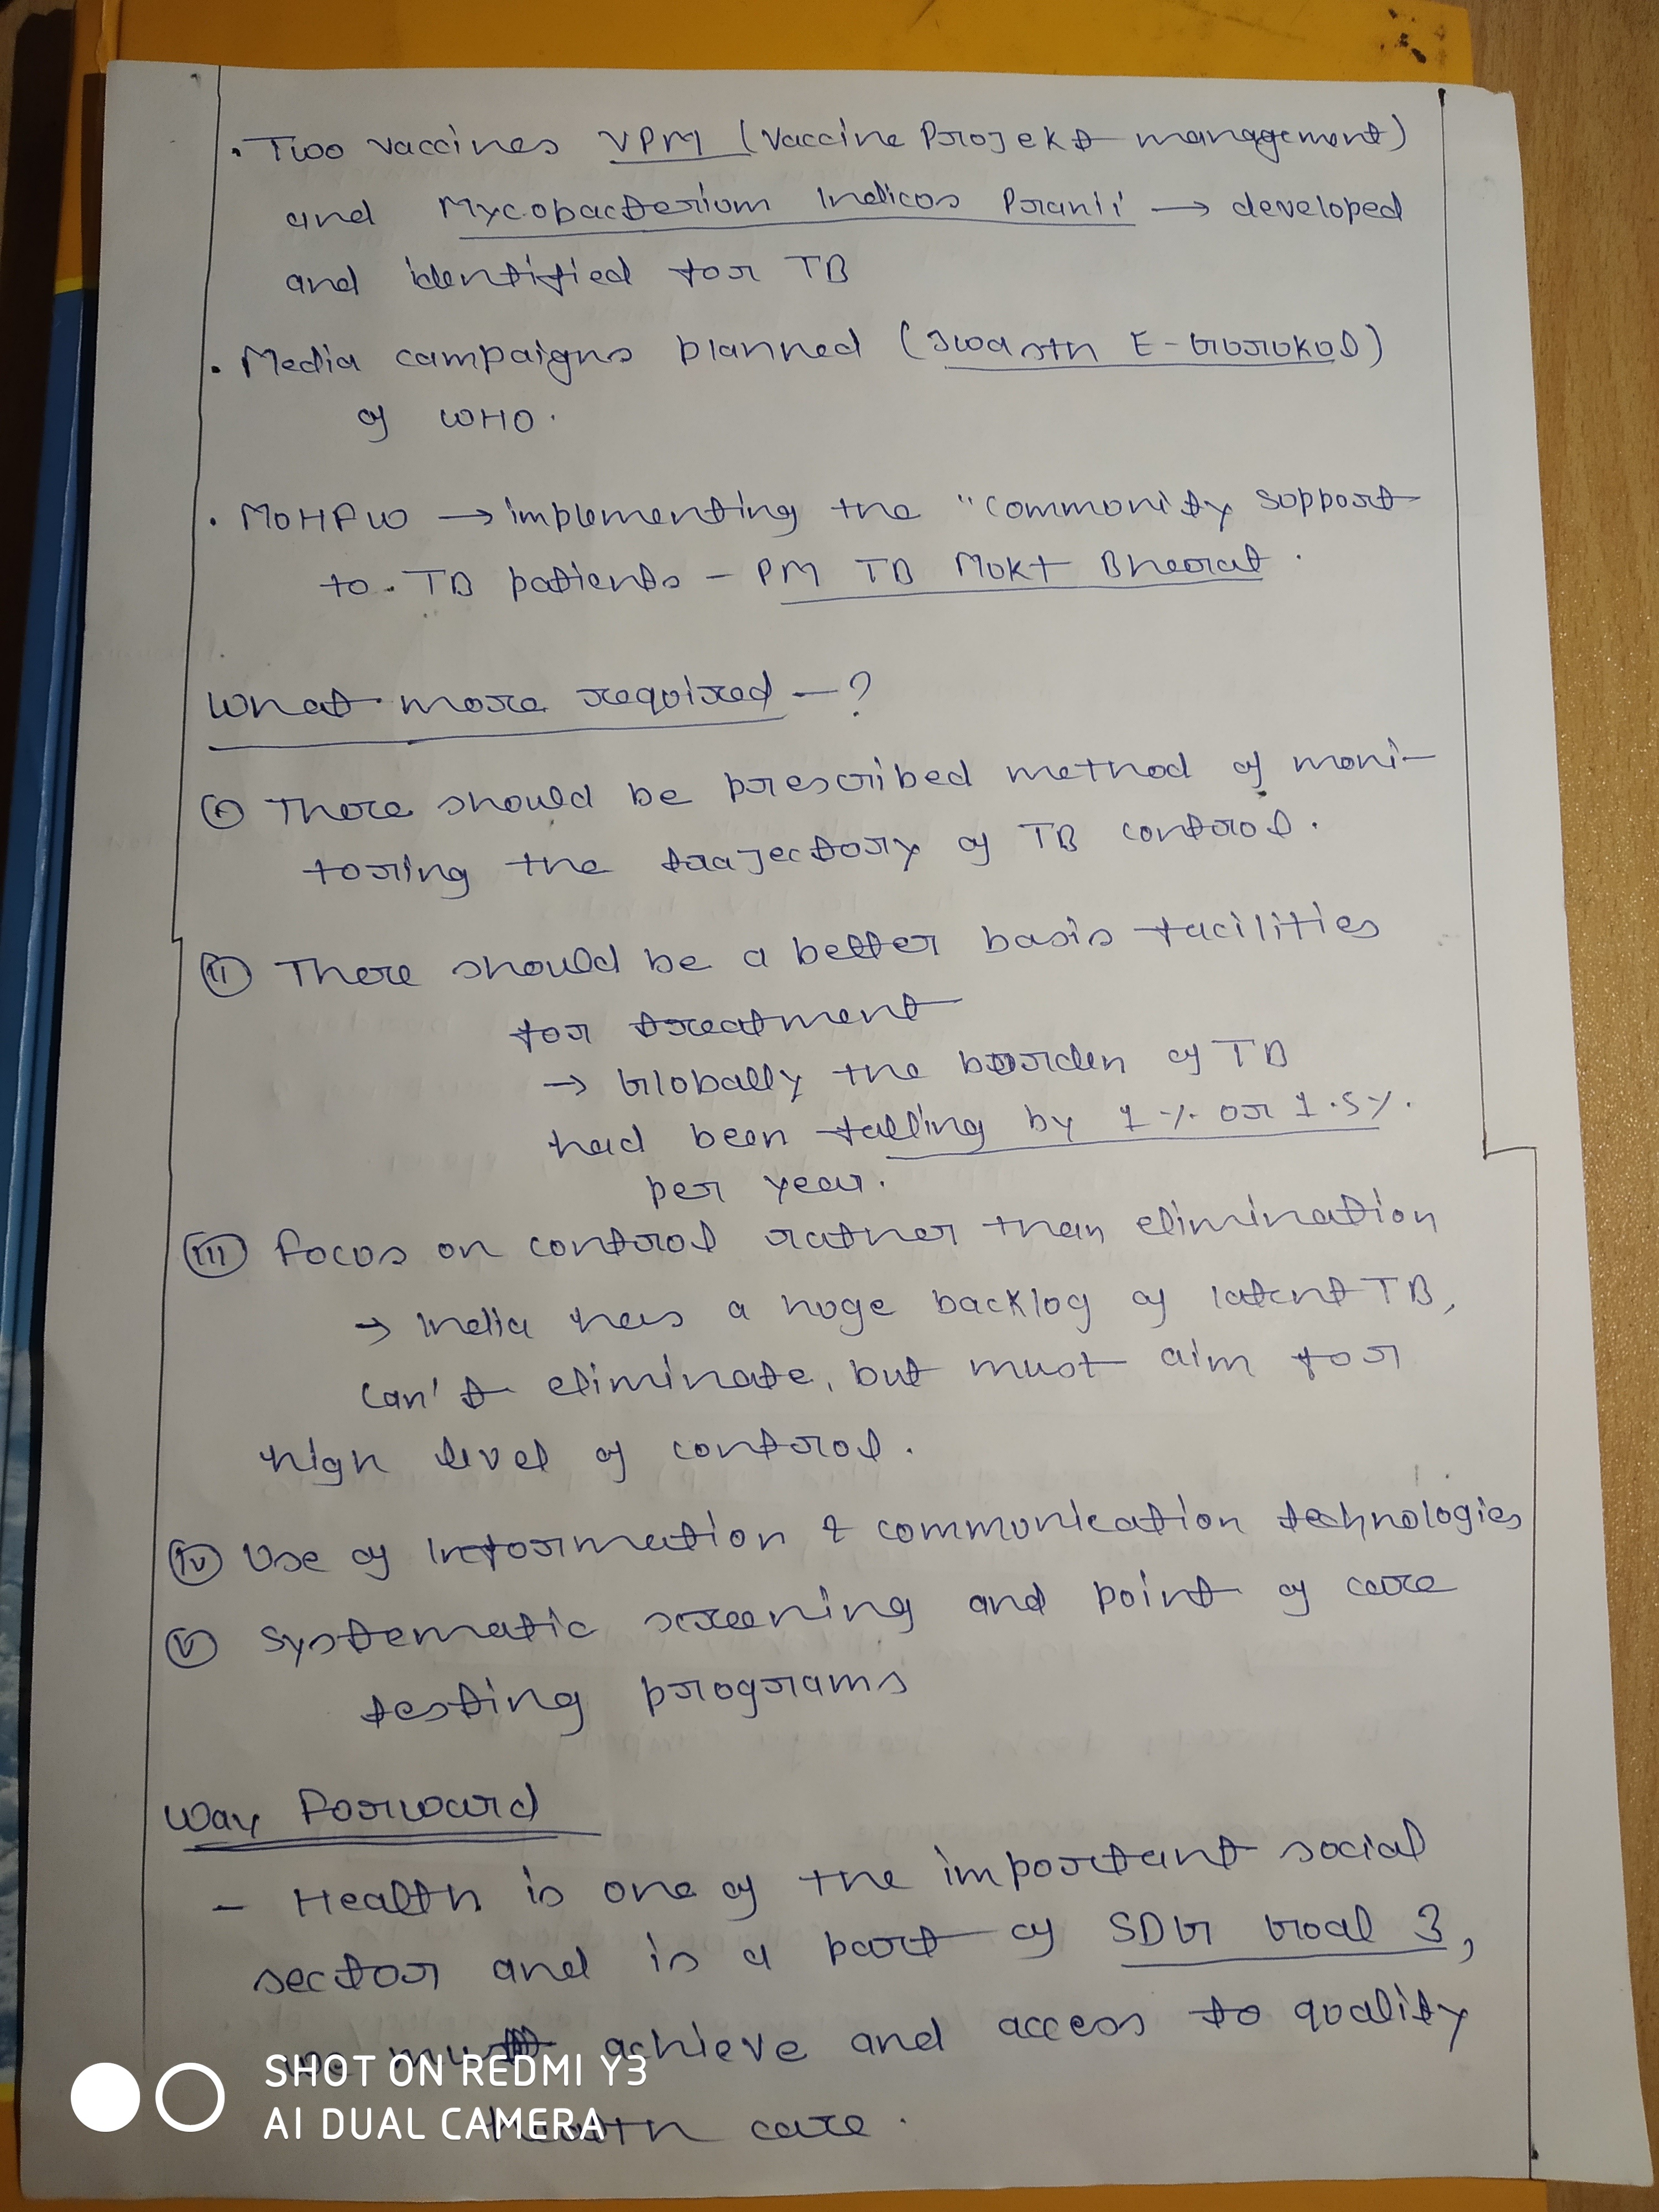 • Two vaccines VPM (Vaccine Projekt management)
and Mycobacterium Indicus Pranii → developed
and identified for TB
• Media campaigns planned (Swasth E-Gurukul)
of WHO.
• MOHFW → implementing the "Community support
to TB patients - PM TB Mukt Bharat.
What more required - ?
(i) There should be prescribed method of moni-
toring the trajectory of TB control.
(ii) There should be a better basis facilities
for treatment
→ Globally the burden of TB
had been falling by 1% or 1.5%
per year.
(iii) Focus on control rather than elimination
→ India has a huge backlog of latent TB,
can't eliminate, but must aim for
high level of control.
(iv) Use of Information & communication technologies
(v) Systematic screening and point of care
testing programs
Way Forward
- Health is one of the important social
sector and is a part of SDG Goal 3,
we must achieve and access to quality
health care.
SHOT ON REDMI Y3
AI DUAL CAMERA